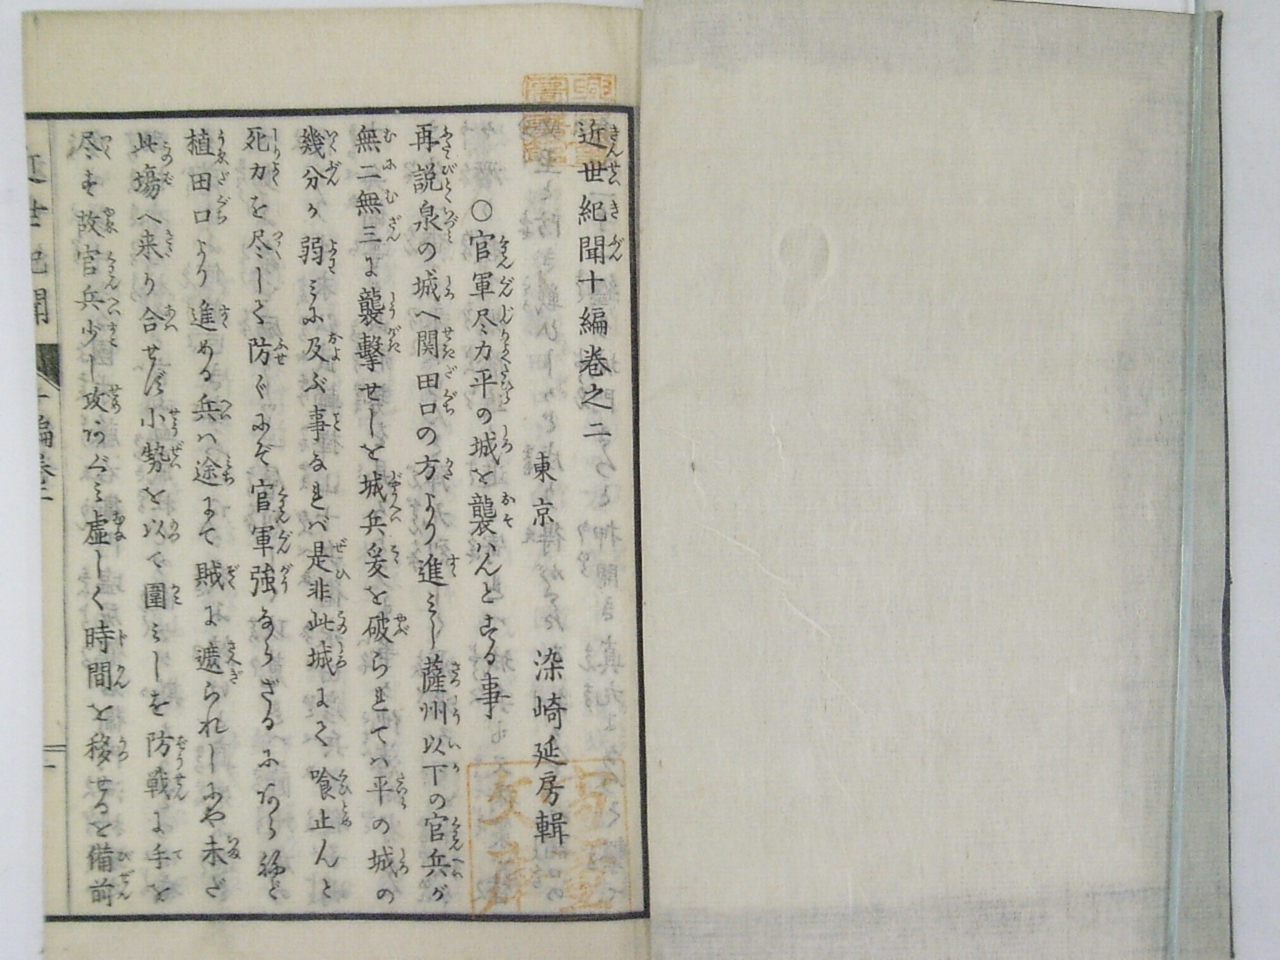 近世紀聞十編巻之二
東京 染崎延房輯
○官軍尽力平の城を襲はんとする事
再説泉の城へ関田口の方より進みし薩州以下の官兵が
無二無三に襲撃せしを城兵爰を破られては平の城の
幾分か弱みに及ぶ事なれバ是非此城にて喰止んと
死力を尽して防ぐにぞ官軍強ならざるにあらねど
植田口より進める兵ハ途にて賊に遮られしにや未だ
此場へ来り合せず小勢を以て囲みしを防戦に手を
尽す故官兵少し攻あぐみ虚しく時間を移せるを備前
近世紀聞 十編巻二